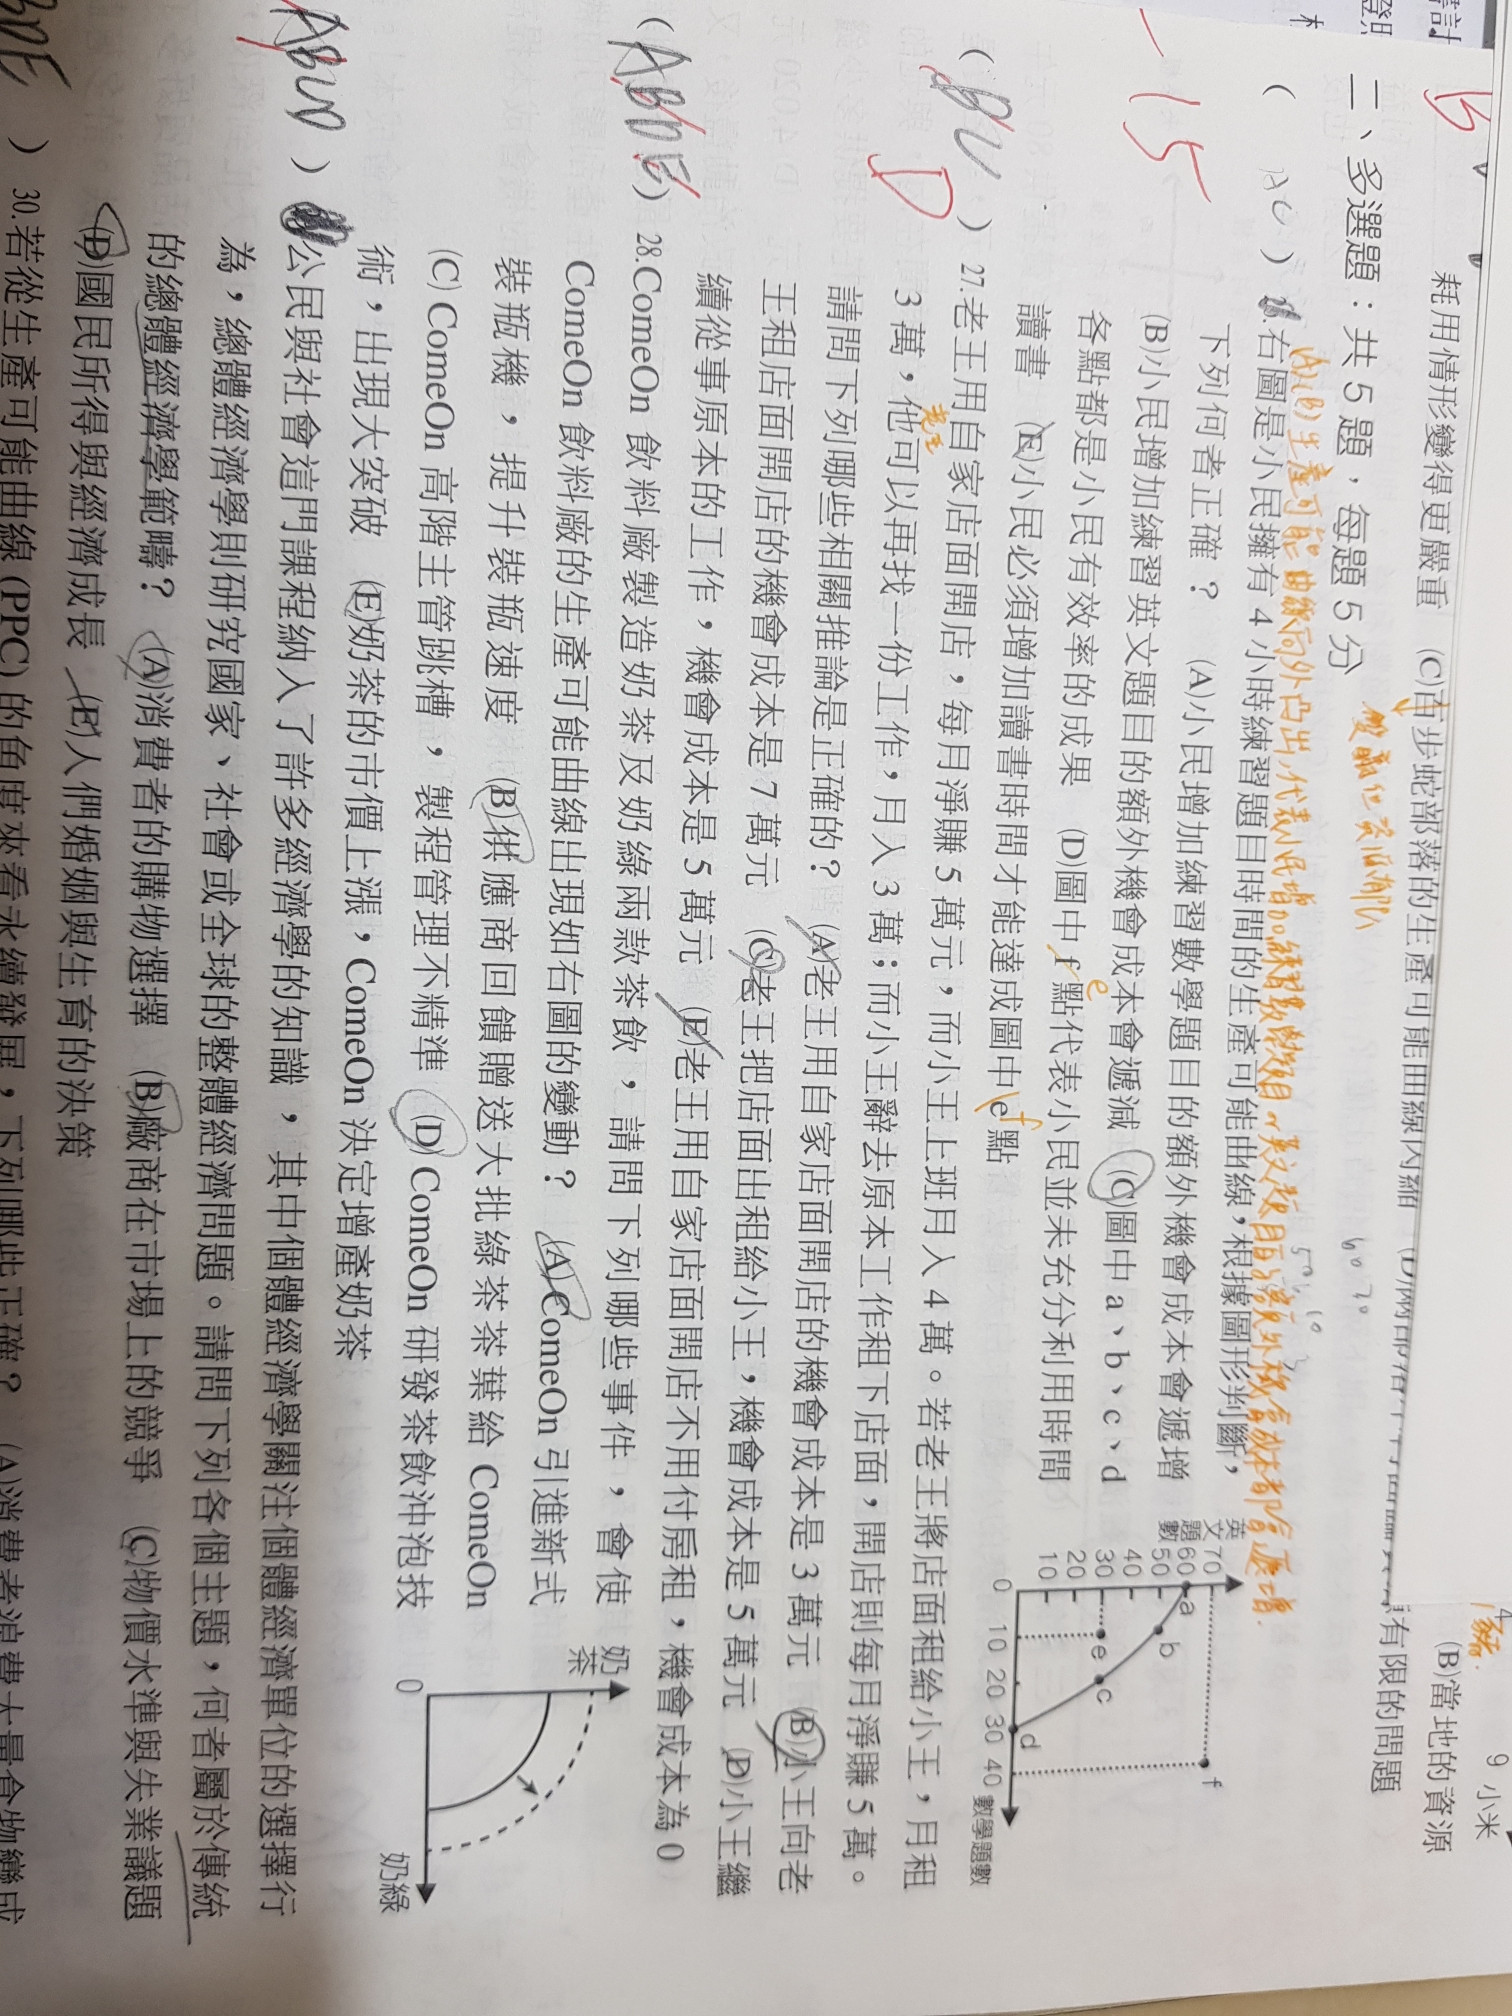 耗用情形變得更嚴重 (C)百步蛇部落的生產可能曲線內縮
有限的問題
9 小米
(B)當地的資源
二、多選題：共 5 題，每題 5 分
(A)(B)生產可能曲線向外凸出,代表小民增加練習數學題目、英文題目的額外機會成本都會遞增.
( AC ) 右圖是小民擁有 4 小時練習題目時間的生產可能曲線,根據圖形判斷,
下列何者正確？ (A)小民增加練習數學題目的額外機會成本會遞增
(B)小民增加練習英文題目的額外機會成本會遞減 (C)圖中 a、b、c、d
各點都是小民有效率的成果 (D)圖中 f 點代表小民並未充分利用時間
e
讀書 (E)小民必須增加讀書時間才能達成圖中 e 點
f
英文題數
70
60
50
40
30
20
10
0
10 20 30 40 數學題數
a
b
c
d
e
f
-15
( BC ) 27.老王用自家店面開店，每月淨賺 5 萬元，而小王上班月入 4 萬。若老王將店面租給小王，月租
D
3 萬，他可以再找一份工作，月入 3 萬；而小王辭去原本工作租下店面，開店則每月淨賺 5 萬。
老王
請問下列哪些相關推論是正確的？ (A)老王用自家店面開店的機會成本是 3 萬元 (B)小王向老
王租店面開店的機會成本是 7 萬元 (C)老王把店面出租給小王，機會成本是 5 萬元 (D)小王繼
續從事原本的工作，機會成本是 5 萬元 (E)老王用自家店面開店不用付房租，機會成本為 0
( ABDE ) 28.ComeOn 飲料廠製造奶茶及奶綠兩款茶飲，請問下列哪些事件，會使
ComeOn 飲料廠的生產可能曲線出現如右圖的變動？ (A)ComeOn 引進新式
裝瓶機，提升裝瓶速度 (B)供應商回饋贈送大批綠茶茶葉給 ComeOn
(C) ComeOn 高階主管跳槽，製程管理不精準 (D) ComeOn 研發茶飲沖泡技
術，出現大突破 (E)奶茶的市價上漲，ComeOn 決定增產奶茶
奶茶
0
奶綠
ABCD ) 公民與社會這門課程納入了許多經濟學的知識，其中個體經濟學關注個體經濟單位的選擇行
為，總體經濟學則研究國家、社會或全球的整體經濟問題。請問下列各個主題，何者屬於傳統
的總體經濟學範疇？ (A)消費者的購物選擇 (B)廠商在市場上的競爭 (C)物價水準與失業議題
(D)國民所得與經濟成長 (E)人們婚姻與生育的決策
BDE ) 30.若從生產可能曲線 (PPC) 的角度來看永續發展，下列哪些正確？ (A)消費者浪費大量食物變成